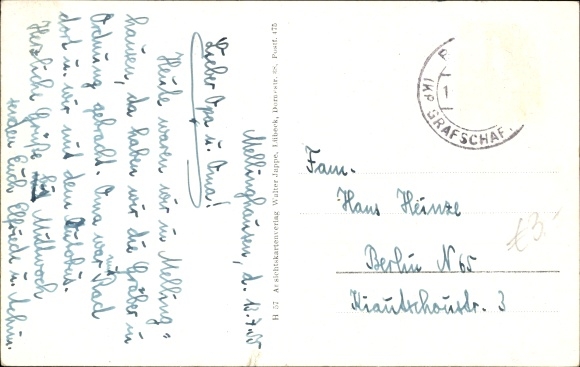 Mellinghausen, d. 13.7.55
Lieber Opa u. Oma!
Heute waren wir in Melling=
hausen, da haben wir die Gräber in
Ordnung gebracht. Oma war mit Rad
dort u. wir mit dem Autobus.
Herzliche Grüße bis Mittwoch
senden Euch Elfriede u. Achim.
H 57 Ansichtskartenverlag Walter Jappe, Lübeck, Dornestr. Postf. 175
GRAFSCHAF
Fam.
Hans Heinze
Berlin N 65
Kiautschoustr. 3
£3.-